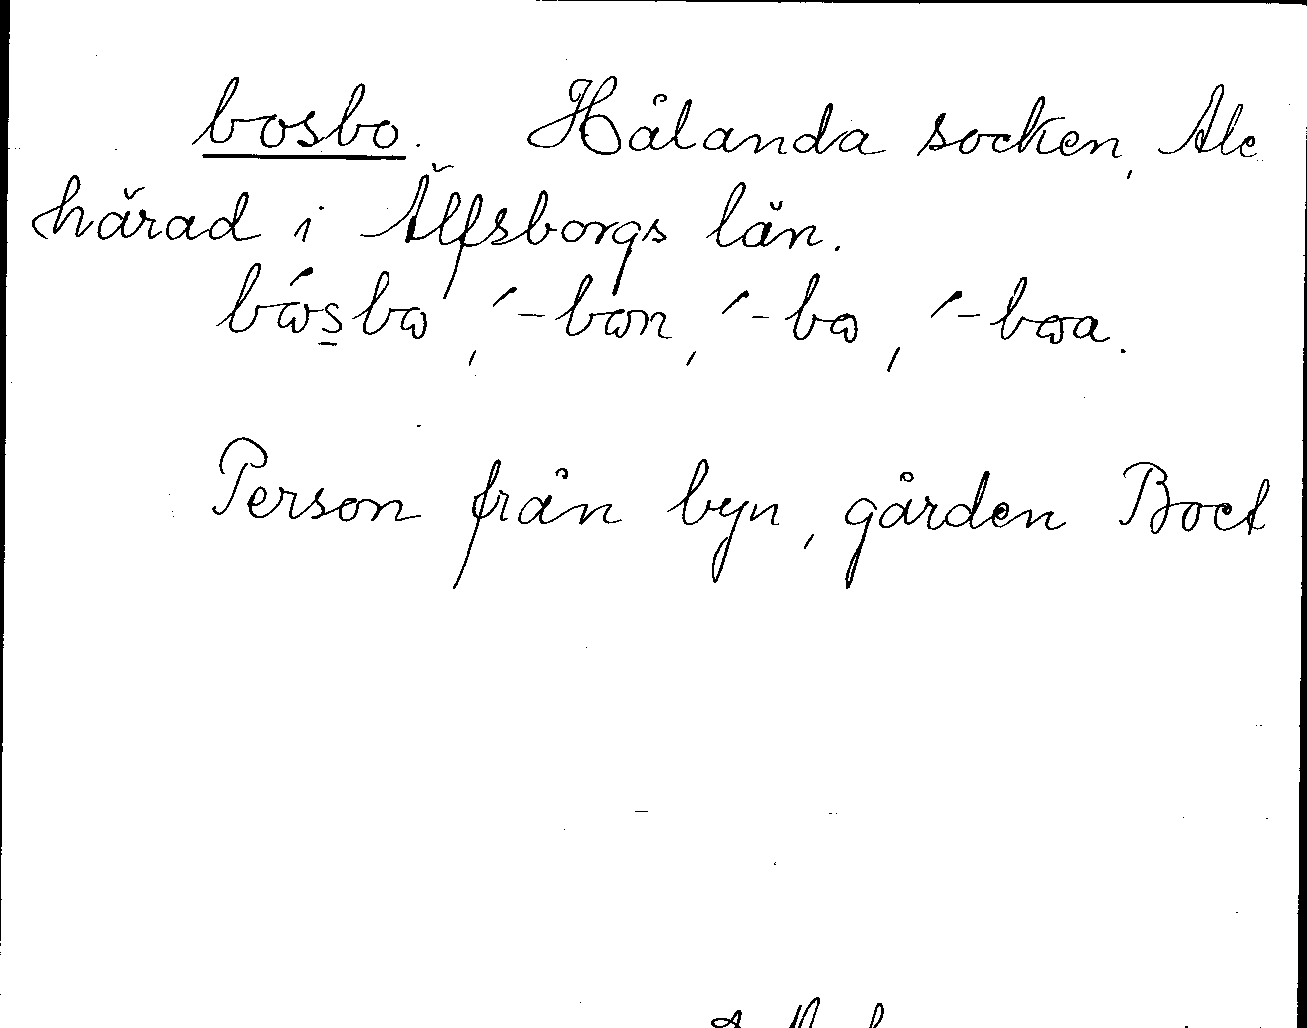 bosbo. Hålanda socken, Ale
härad i Älfsborgs län.
bósbo, ´-bon, ´-bo, ´-boa.
Person från byn, gården Boet